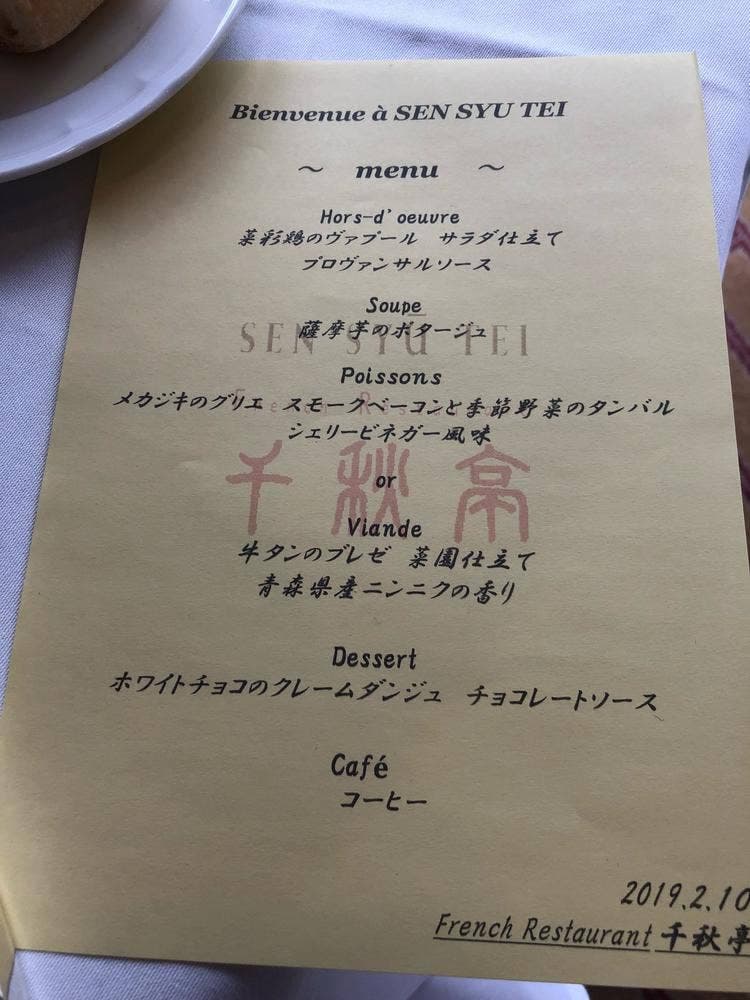 Bienvenue à SEN SYU TEI
～ menu ～
Hors-d'oeuvre
菜彩鶏のヴァプール サラダ仕立て
プロヴァンサルソース
Soupe
薩摩芋のポタージュ
SEN SYŪ TEI
Poissons
French Restaurant
メカジキのグリエ スモークベーコンと季節野菜のタンバル
シェリービネガー風味
千秋亭
or
Viande
牛タンのブレゼ 菜園仕立て
青森県産ニンニクの香り
Dessert
ホワイトチョコのクレームダンジュ チョコレートソース
Café
コーヒー
2019.2.10
French Restaurant 千秋亭